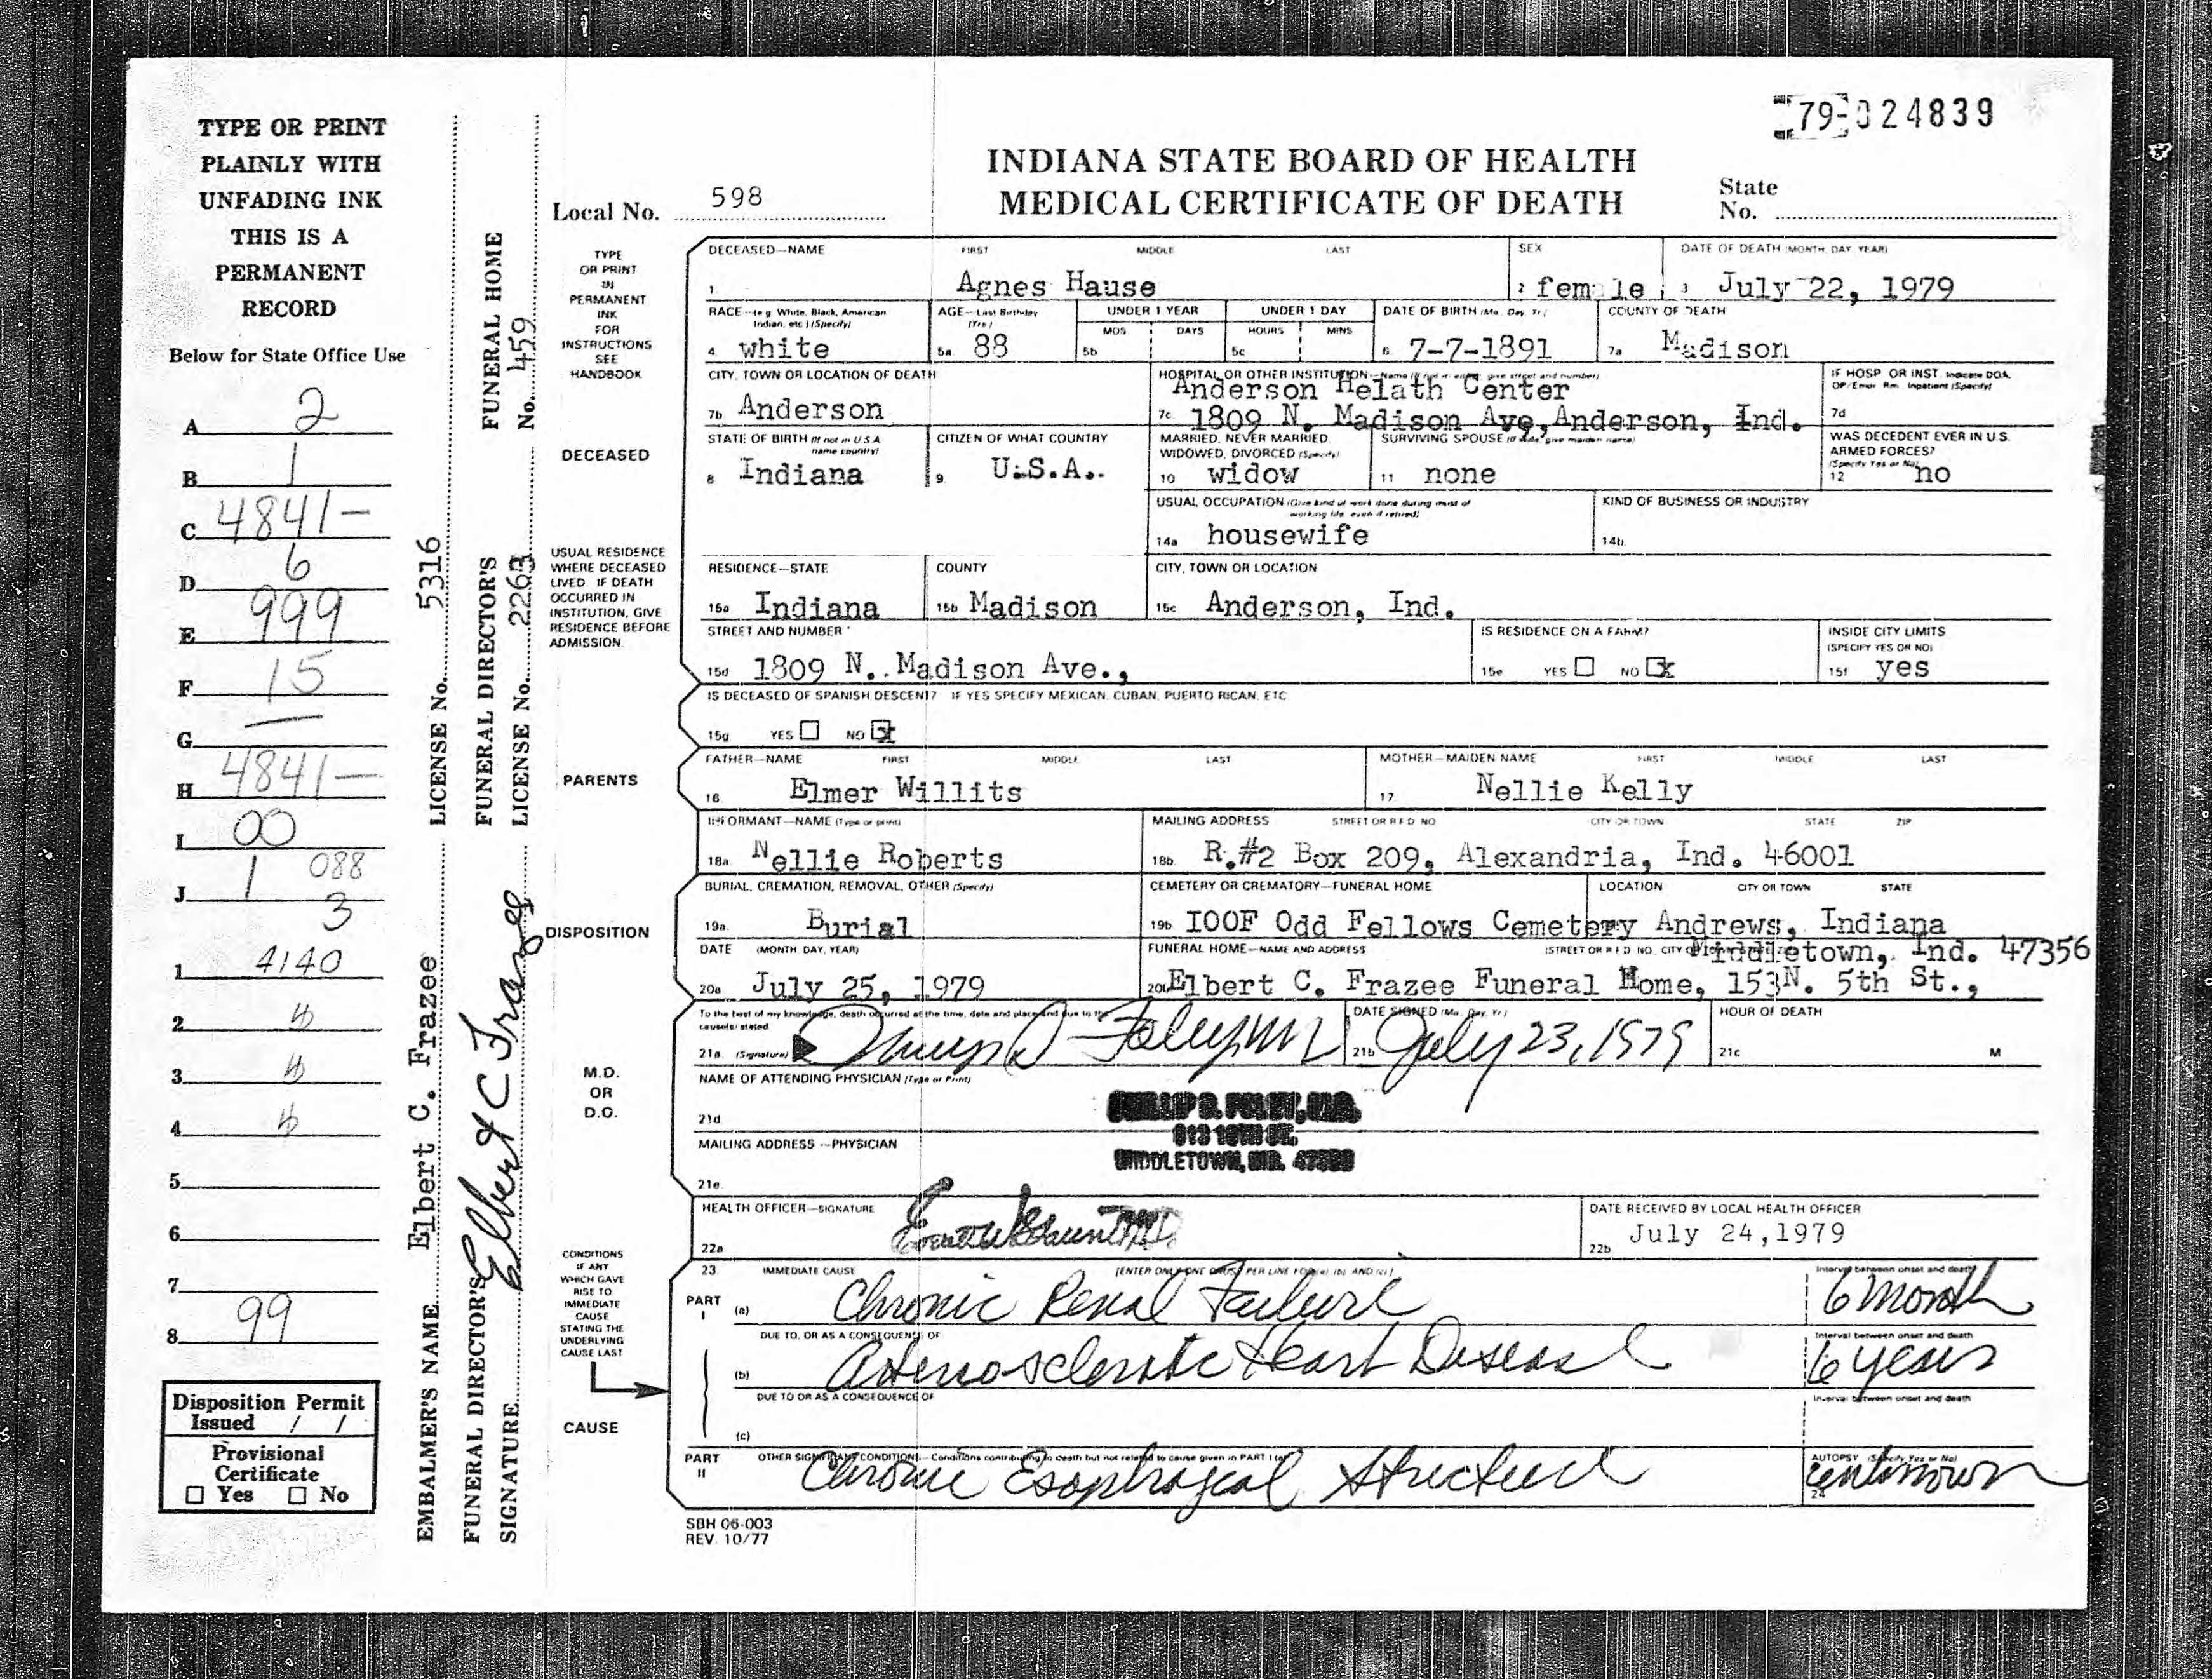 79-024839
INDIANA STATE BOARD OF HEALTH
MEDICAL CERTIFICATE OF DEATH
Local No. 598
State
No.
TYPE OR PRINT
PLAINLY WITH
UNFADING INK
THIS IS A
PERMANENT
RECORD
Below for State Office Use
A 2
B 1
C 4841-
D 6
E 999
F 15
G —
H 4841-
I 00
J 1 088
3
1 4140
2
3
4
5
6
7
8 99
Disposition Permit
Issued / /
Provisional
Certificate
☐ Yes ☐ No
EMBALMER'S NAME Elbert C. Frazee LICENSE No. 5316
FUNERAL DIRECTOR'S FUNERAL DIRECTOR'S FUNERAL HOME
SIGNATURE Elbert C Frazee LICENSE No. 2263 No. 459
TYPE
OR PRINT
IN
PERMANENT
INK
FOR
INSTRUCTIONS
SEE
HANDBOOK
DECEASED
USUAL RESIDENCE
WHERE DECEASED
LIVED. IF DEATH
OCCURRED IN
INSTITUTION, GIVE
RESIDENCE BEFORE
ADMISSION.
PARENTS
DISPOSITION
M.D.
OR
D.O.
CONDITIONS
IF ANY
WHICH GAVE
RISE TO
IMMEDIATE
CAUSE
STATING THE
UNDERLYING
CAUSE LAST
CAUSE
DECEASED—NAME FIRST MIDDLE LAST SEX DATE OF DEATH (MONTH, DAY, YEAR)
1. Agnes Hause 2 female 3 July 22, 1979
RACE—(e.g. White, Black, American Indian, etc.) (Specify) AGE—Last Birthday (Yrs.) UNDER 1 YEAR UNDER 1 DAY DATE OF BIRTH (Mo., Day, Yr.) COUNTY OF DEATH
MOS DAYS HOURS MINS
4. white 5a. 88 5b 5c 6 7-7-1891 7a Madison
CITY, TOWN OR LOCATION OF DEATH HOSPITAL OR OTHER INSTITUTION—Name (If not in either, give street and number) IF HOSP. OR INST. Indicate DOA, OP/Emer. Rm. Inpatient (Specify)
Anderson Helath Center
7b Anderson 7c. 1809 N. Madison Ave,Anderson, Ind. 7d
STATE OF BIRTH (If not in U.S.A. name country) CITIZEN OF WHAT COUNTRY MARRIED, NEVER MARRIED, WIDOWED, DIVORCED (Specify) SURVIVING SPOUSE (If wife, give maiden name) WAS DECEDENT EVER IN U.S. ARMED FORCES? (Specify Yes or No)
8 Indiana 9. U.S.A.. 10 widow 11 none 12 no
USUAL OCCUPATION (Give kind of work done during most of working life, even if retired) KIND OF BUSINESS OR INDUSTRY
14a housewife 14b.
RESIDENCE—STATE COUNTY CITY, TOWN OR LOCATION
15a Indiana 15b Madison 15c Anderson, Ind.
STREET AND NUMBER IS RESIDENCE ON A FARM? INSIDE CITY LIMITS (SPECIFY YES OR NO)
15d 1809 N..Madison Ave., 15e YES ☐ NO ☒ 15f yes
IS DECEASED OF SPANISH DESCENT? IF YES SPECIFY MEXICAN, CUBAN, PUERTO RICAN, ETC
15g YES ☐ NO ☒
FATHER—NAME FIRST MIDDLE LAST MOTHER—MAIDEN NAME FIRST MIDDLE LAST
16 Elmer Willits 17. Nellie Kelly
INFORMANT—NAME (Type or print) MAILING ADDRESS STREET OR R.F.D. NO. CITY OR TOWN STATE ZIP
18a Nellie Roberts 18b. R.#2 Box 209, Alexandria, Ind. 46001
BURIAL, CREMATION, REMOVAL, OTHER (Specify) CEMETERY OR CREMATORY—FUNERAL HOME LOCATION CITY OR TOWN STATE
19a. Burial 19b IOOF Odd Fellows Cemetery Andrews, Indiana
DATE (MONTH, DAY, YEAR) FUNERAL HOME—NAME AND ADDRESS (STREET OR R.F.D. NO. CITY Middletown, Ind. 47356
20a July 25, 1979 20b Elbert C. Frazee Funeral Home, 153N. 5th St.,
To the best of my knowledge, death occurred at the time, date and place and due to the cause(s) stated DATE SIGNED (Mo., Day, Yr.) HOUR OF DEATH
21a. (Signature) Foley MD 21b July 23, 1979 21c M
NAME OF ATTENDING PHYSICIAN (Type or Print)
21d PHILLIP D. FOLEY, M.D.
MAILING ADDRESS—PHYSICIAN
MIDDLETOWN, IND.
21e.
HEALTH OFFICER—SIGNATURE DATE RECEIVED BY LOCAL HEALTH OFFICER
22a 22b July 24,1979
23. IMMEDIATE CAUSE [ENTER ONLY ONE CAUSE PER LINE FOR (a), (b), AND (c)] Interval between onset and death
PART I (a) Chronic Renal Failure 6 month
DUE TO, OR AS A CONSEQUENCE OF Interval between onset and death
(b) Arteriosclerotic Heart Disease 6 years
DUE TO OR AS A CONSEQUENCE OF Interval between onset and death
(c)
PART II OTHER SIGNIFICANT CONDITIONS—Conditions contributing to death but not related to cause given in PART I (a) AUTOPSY (Specify Yes or No)
Chronic Esophageal Stricture 24 unknown
SBH 06-003
REV. 10/77